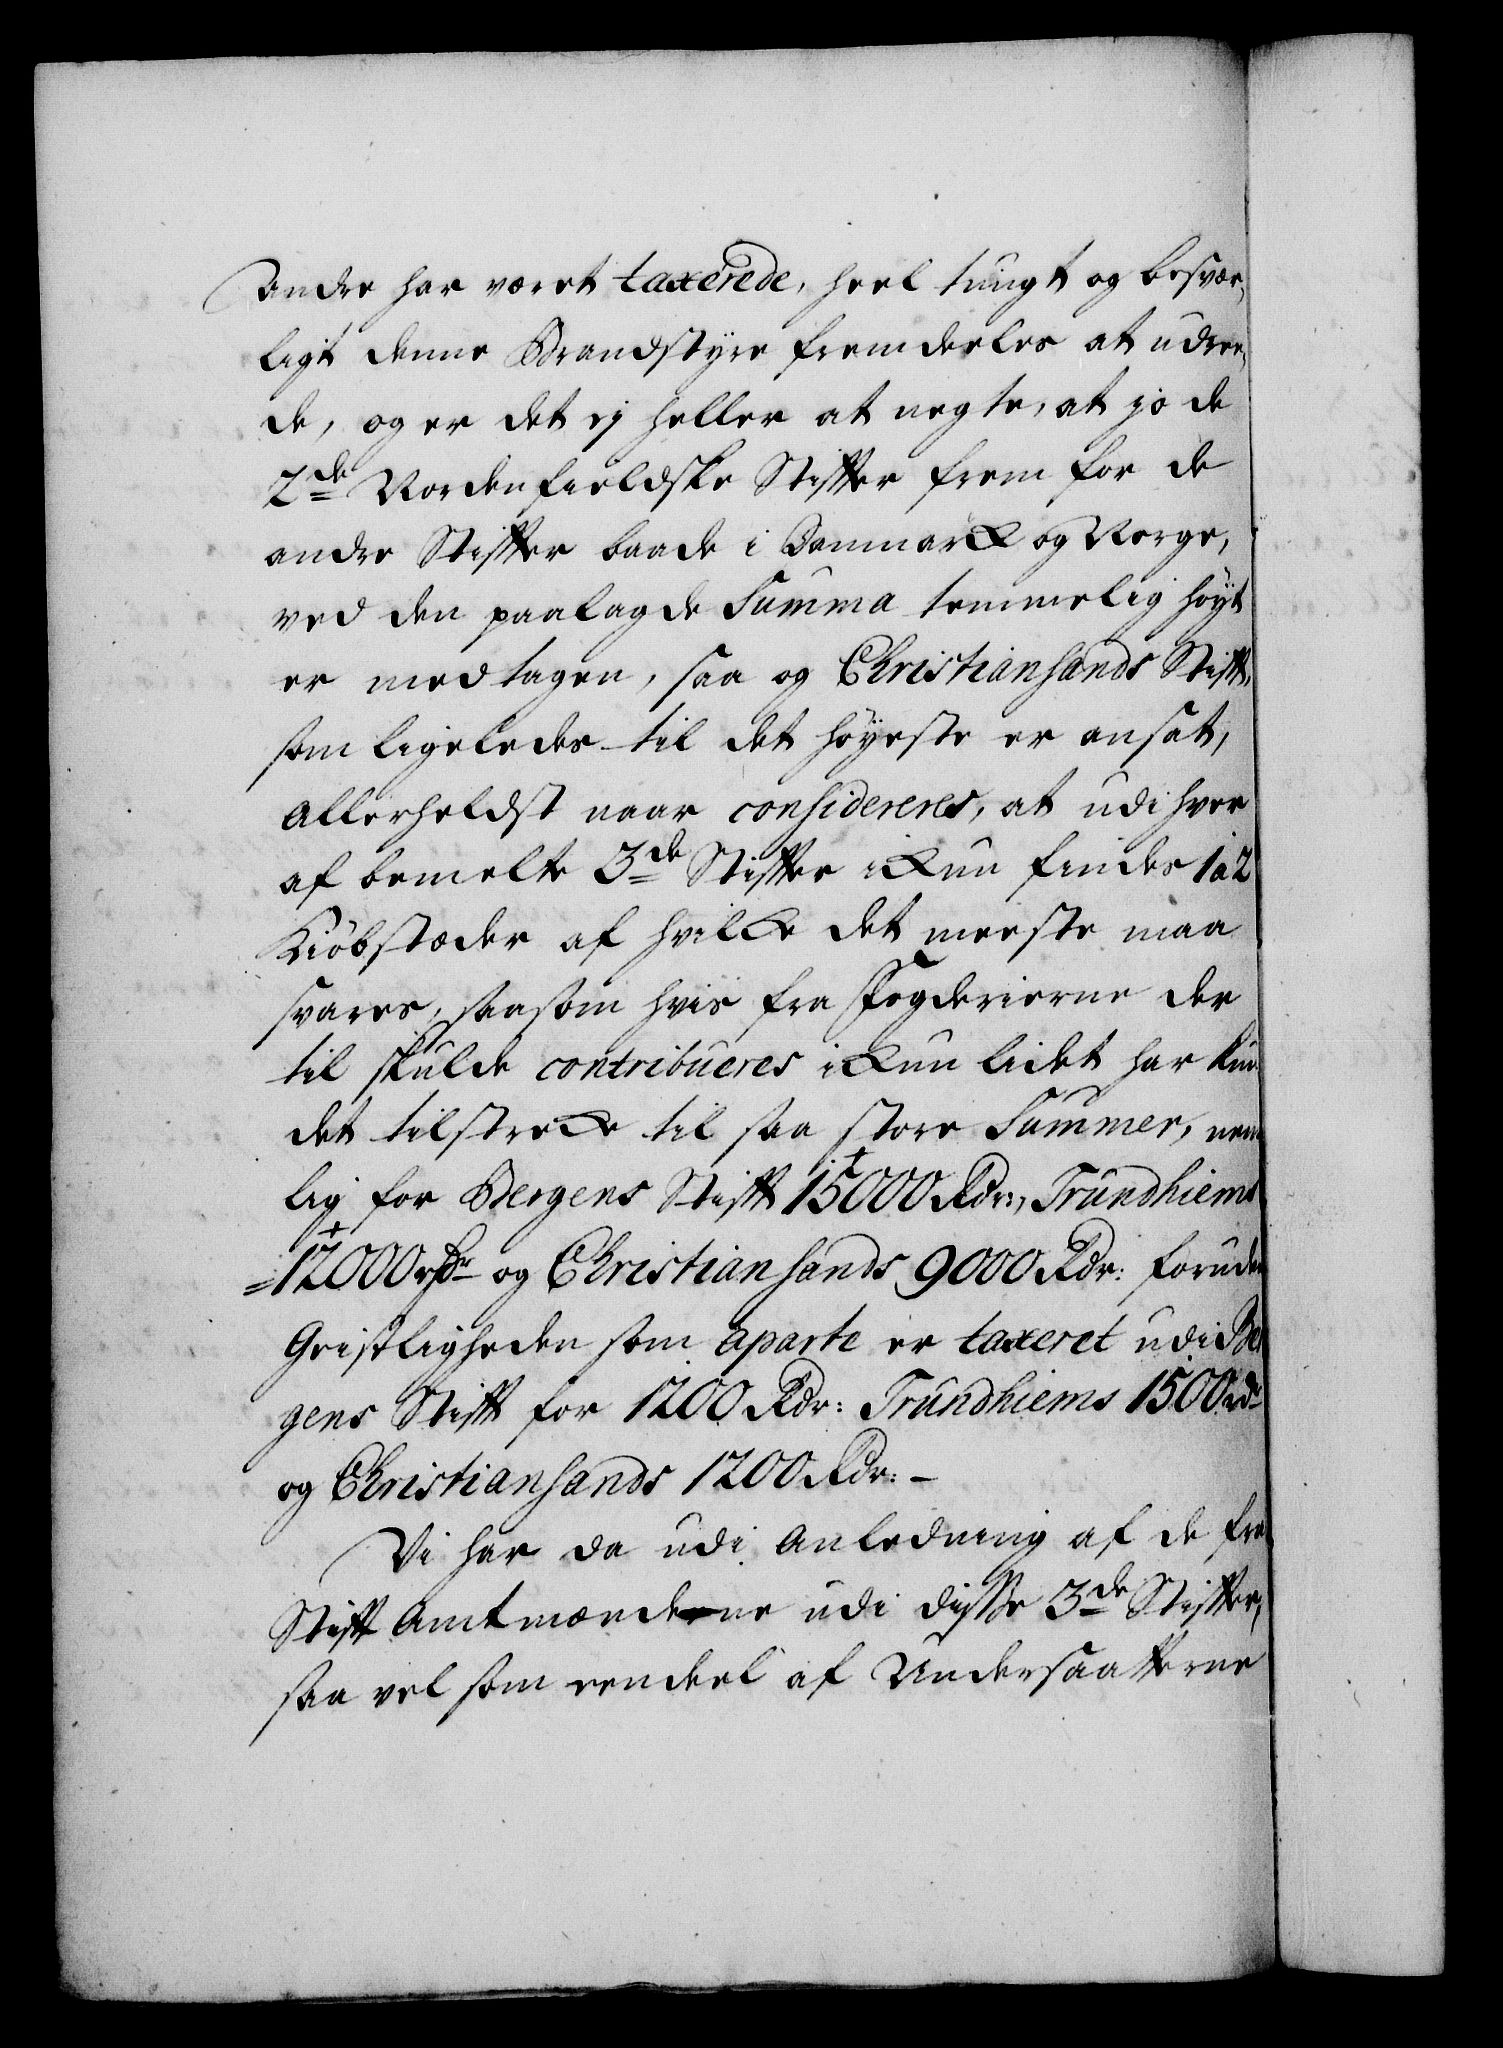 andre har været taxerede, heel tungt og besvær-
ligt denne Brandstyre fremdeeles at udree-
de, og er det ej heller at negte, at jo de
2de Nordenfieldske Stifter frem for de
andre Stifter baade i Danmarck og Norge,
ved den paalagde Summa temmelig høyt
er medtagen, saa og Christiansands Stift,
som ligeledes til det høyeste er ansat,
Allerheldst naar considereres, at udi hver
af bemelte 3de Stifter ickun findes 1 à 2
Kiøbstæder af hvilcke det meeste maa
svares, saasom hvis fra Fogderierne der
til skulde contribueres ickun lidet har kun-
det tilstrecke til saa store Summer, nem
lig for Bergens Stift 15000 Rdr:, Trundhiems
12000 rdr og Christiansands 9000 Rdr: foruden
Geistligheden som aparte er taxeret udi Ber
gens Stift for 1200 Rdr: Trundhiems 1500 rdr
og Christiansands 1200 Rdr: –
Vi har da udi Anledning af de fra
Stift Amtmændene udi disse 3de Stifter,
saa vel som eendeel af Undersaatterne